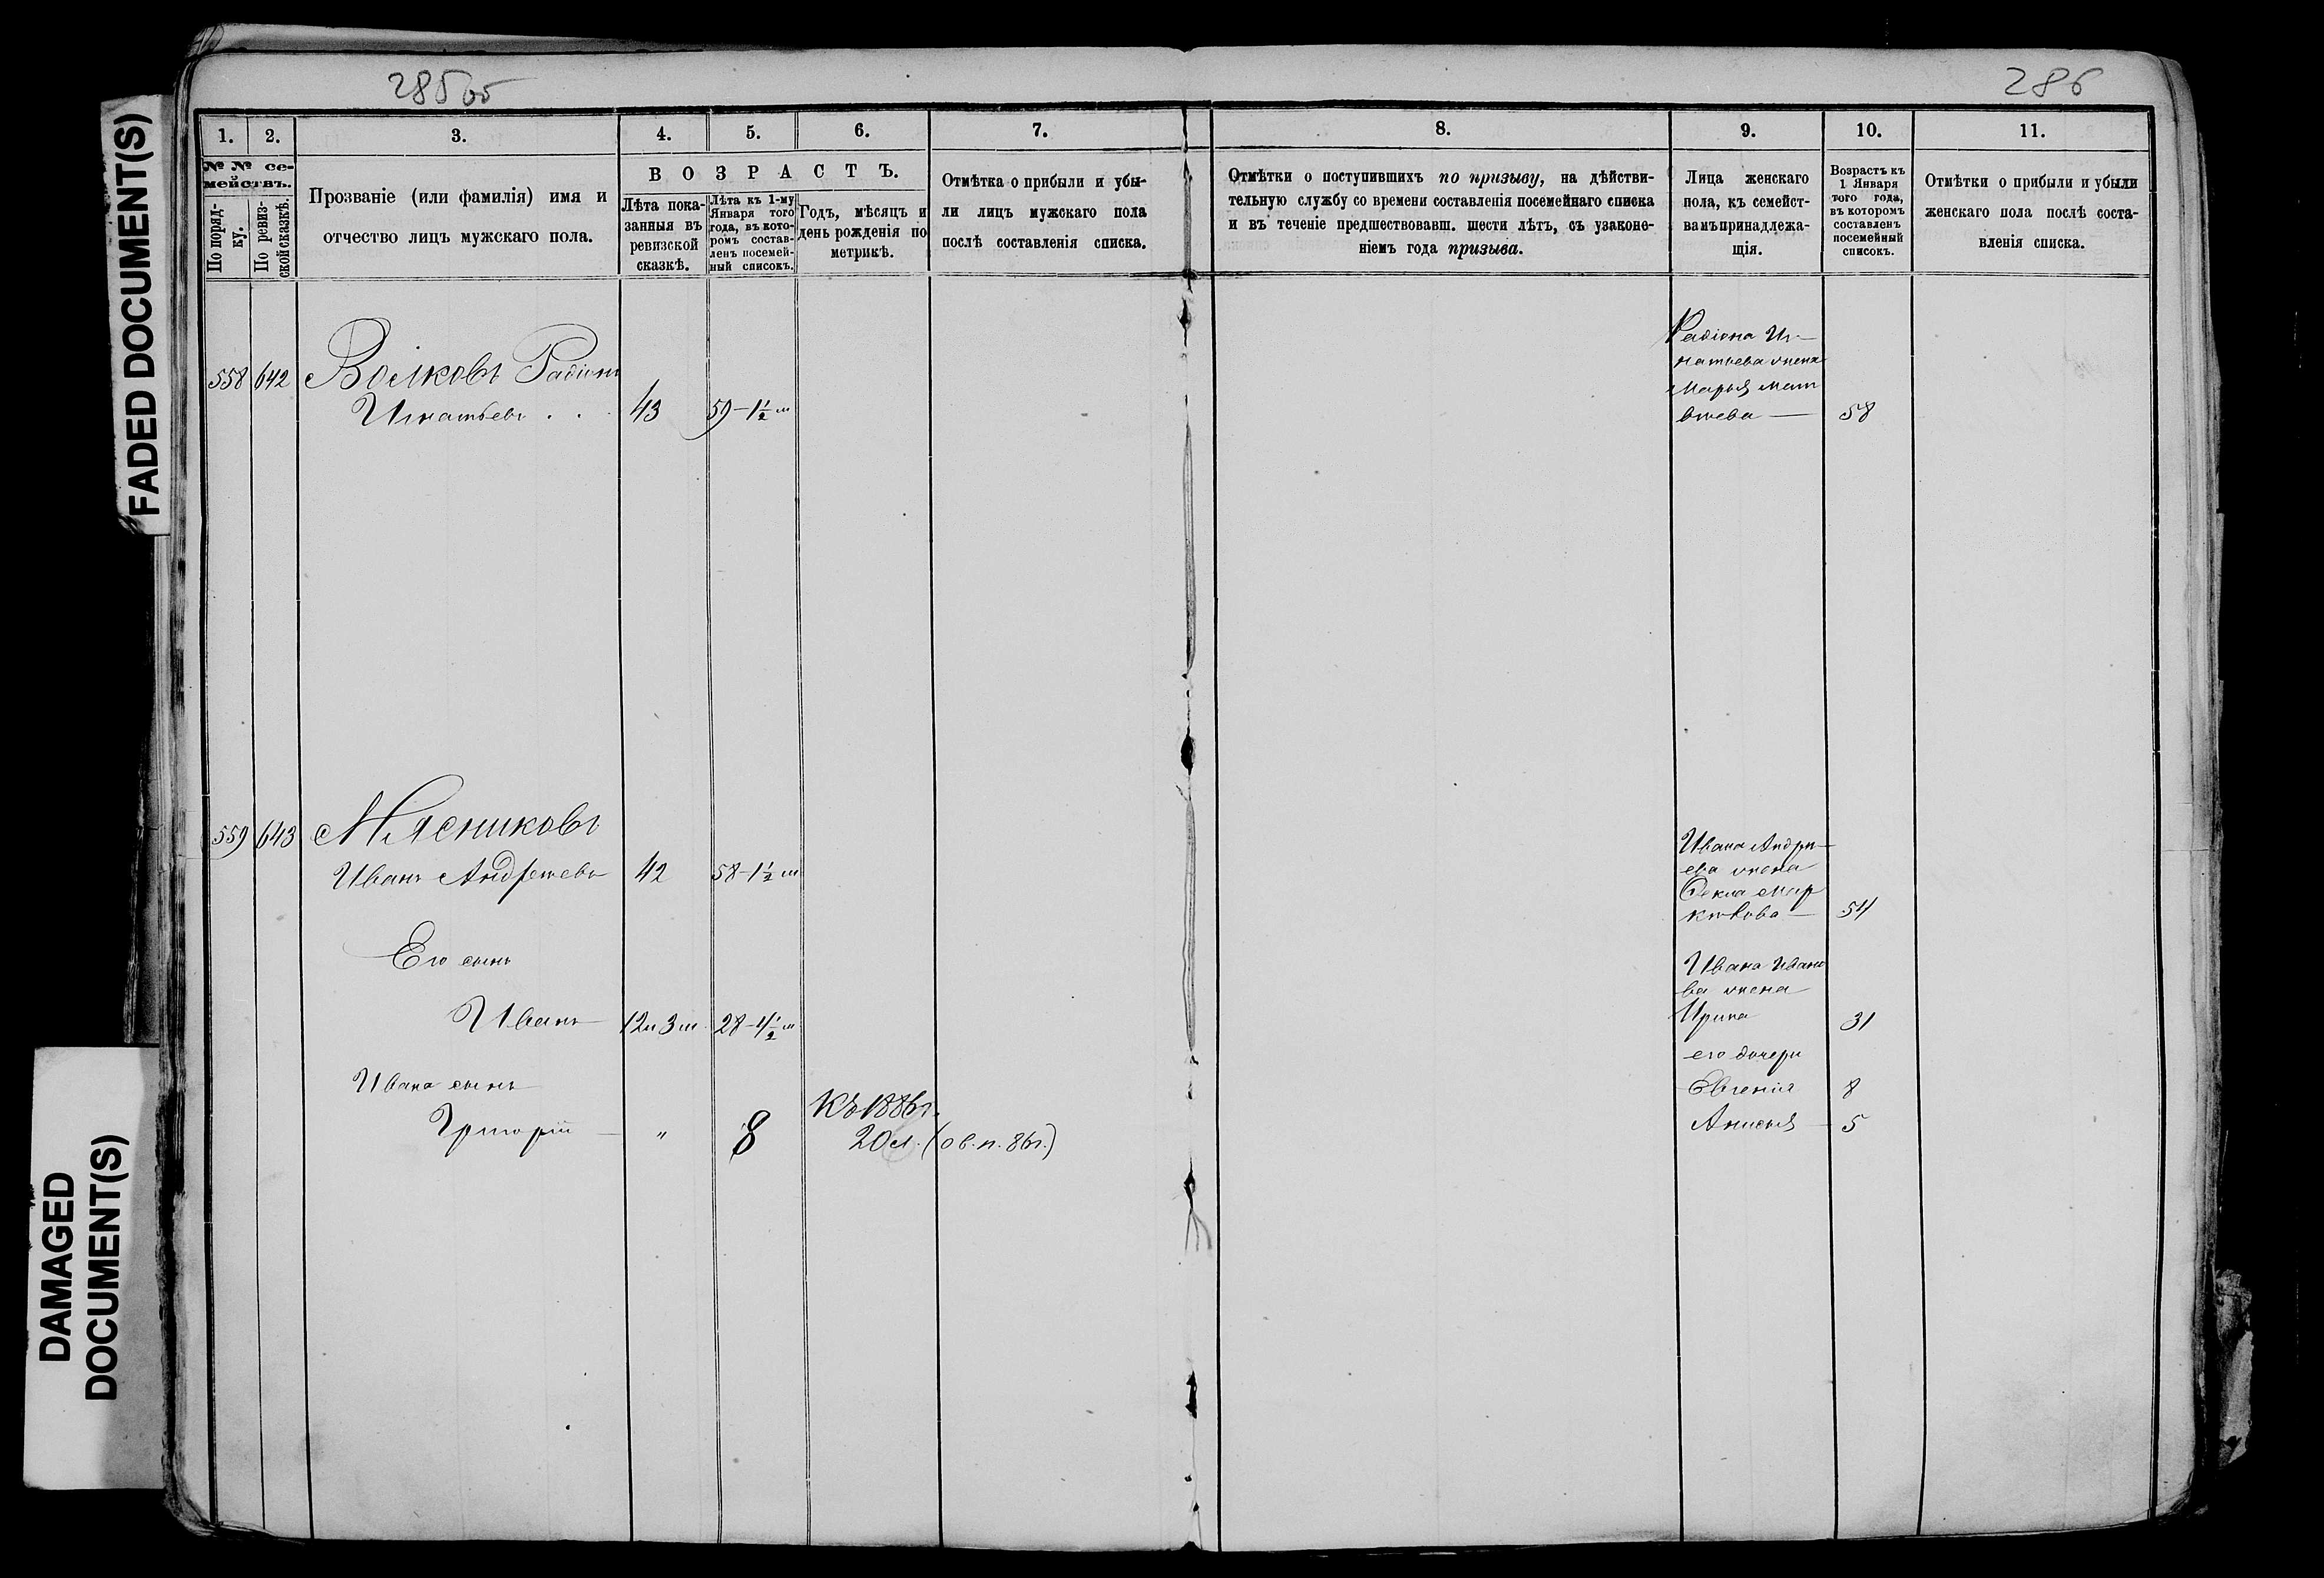 FADED DOCUMENT(S)
DAMAGED
DOCUMENT(S)
285об
286
1.
2.
3.
4.
5.
6.
7.
8.
9.
10.
11.
№ № се-
мействъ.
По поряд-
ку.
По ревиз-
ской сказкѣ.
Прозваніе (или фамилія) имя и
отчество лицъ мужскаго пола.
ВОЗРАСТЪ.
Лѣта пока-
занныя въ
ревизской
сказкѣ.
Лѣта къ 1-му
Января того
года, въ кото-
ромъ состав-
ленъ посемей-
ный списокъ.
Годъ, мѣсяцъ и
день рожденія по
метрикѣ.
Отмѣтка о прибыли и убы-
ли лицъ мужскаго пола
послѣ составленія списка.
Отмѣтки о поступившихъ по призыву, на дѣйстви-
тельную службу со времени составленія посемейнаго списка
и въ теченіе предшествовавш. шести лѣтъ, съ узаконе-
ніемъ года призыва.
Лица женскаго
пола, къ семейст-
вамъ принадлежа-
щія.
Возрастъ къ
1 Января
того года,
въ которомъ
составленъ
посемейный
списокъ.
Отмѣтки о прибыли и убыли
женскаго пола послѣ соста-
вленія списка.
558 642 Волковъ Радіонъ
Игнатьевъ . . 43 59-1½ м
Радіона Иг-
натьева жена
Марья Мат
вѣева — 58
559 643 Мясниковъ
Иванъ Андреевъ 42 58-1½ м
Его сынъ
Иванъ 12 и 3 м. 28-4½ м
Ивана сынъ
Григорій — " 8
Къ 1886 г.
20 л. (о в. п. 86 г.)
Ивана Андре-
ева жена
Фекла Мар
— 54
Ивана Ивано
ва жена
Ирина 31
его дочери
Евгенія 8
Анисья — 5